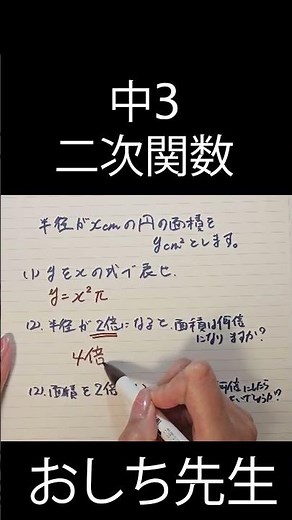 中3
二次関数
半径がxcmの円の面積を
ycm²とします。
(1) yをxの式で表せ.
y=x²π
(2). 半径が2倍になると、面積は何倍
になりますか?
4倍
(2). 面積を2倍
おしち先生